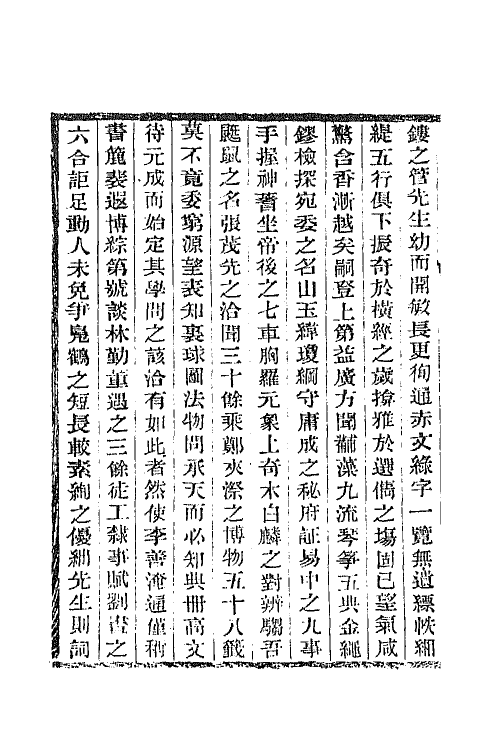 鏤之管先生幼而開敏長更徇通赤文綠字一覽無遺縹帙緗
緹五行俱下振奇於橫經之歲搴雅於選儁之場固已望氣咸
驚含香漸越矣嗣登上第益廣方聞黼藻九流琴筝五典金繩
鏐檢探宛委之名山玉緯瓊綱守庸成之秘府証易中之九事
手握神蓍坐帝後之七車胸羅元象上奇木白麟之對辨騶吾
鼮鼠之名張茂先之洽聞三十餘乘鄭夾漈之博物五十八籤
莫不竟委窮源望表知裏球圖法物問禾天而必知典冊高文
待元成而始定其學問之該洽有如此者然使李善淹通僅稱
書簏裴遐博綜第號談林勤董遇之三餘徒工隸事賦劉晝之
六合詎足動人未免爭鳧鶴之短長較素絢之優絀先生則詞